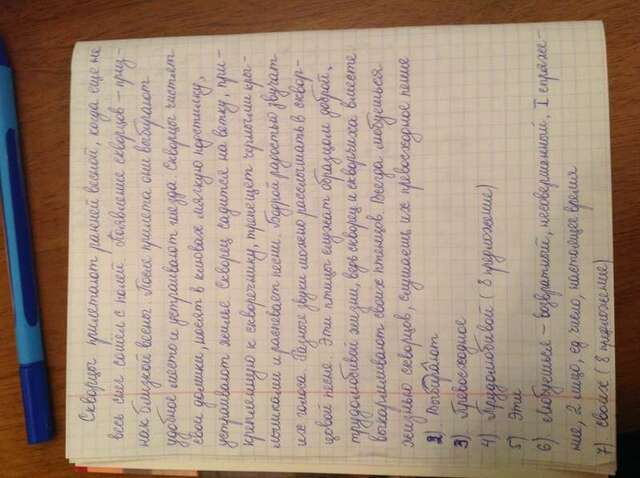 Скворцы прилетают ранней весной, когда еще не
весь снег сошел с полей. Появление скворцов - приз-
нак близкой весны. После прилета они выбирают
удобное место и устраивают гнезда. Скворцы чистят
свои домики, носят в клювах мягкую подстилку,
устраивают жилье. Скворец садится на ветку, при-
крепленную к скворечнику, трепещет чумоглы кры-
лышками и распевает песни. Бодрой радостью звучат
их голоса. Разные звуки можно расслышать в сквор-
цовой песне. Эти птицы служат образцом доброй,
трудолюбивой жизни, ведь скворец и скворчиха вместе
выкармливают своих птенцов. Всегда любуешься
жизнью скворцов, слушаешь их превосходное пение
2) Выбирают
3) Превосходное
4) Трудолюбивой (8 предложение)
5) Эти
6) Любуешься - возвратный, несовершенный, I спряже-
ние, 2 лицо, ед число, настоящее время
7) своих (8 предложение)